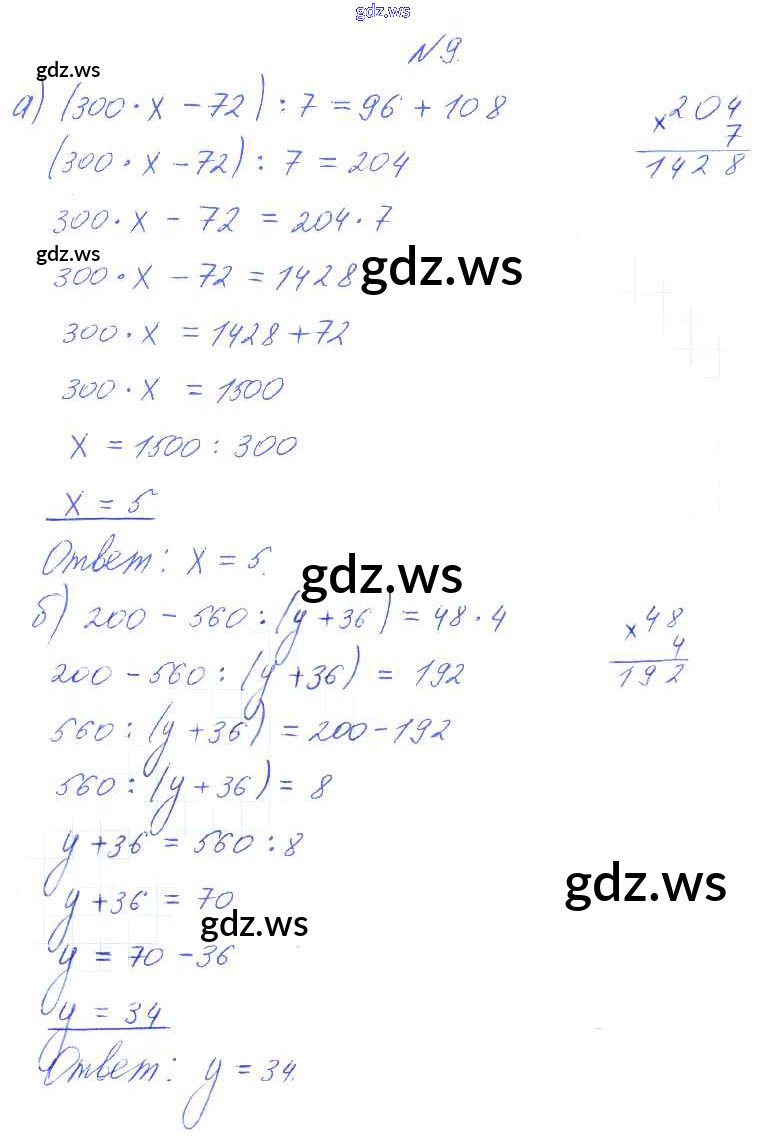 gdz.ws
№9.
gdz.ws
а) (300·x – 72) : 7 = 96 + 108
204
× 7
1428
(300·x – 72) : 7 = 204
300·x – 72 = 204·7
gdz.ws
300·x – 72 = 1428
gdz.ws
300·x = 1428 + 72
300·x = 1500
x = 1500 : 300
x = 5
Ответ: x = 5.
gdz.ws
б) 200 – 560 : (y + 36) = 48·4
48
× 4
192
200 – 560 : (y + 36) = 192
560 : (y + 36) = 200 – 192
560 : (y + 36) = 8
y + 36 = 560 : 8
gdz.ws
y + 36 = 70
gdz.ws
y = 70 – 36
y = 34
Ответ: y = 34.